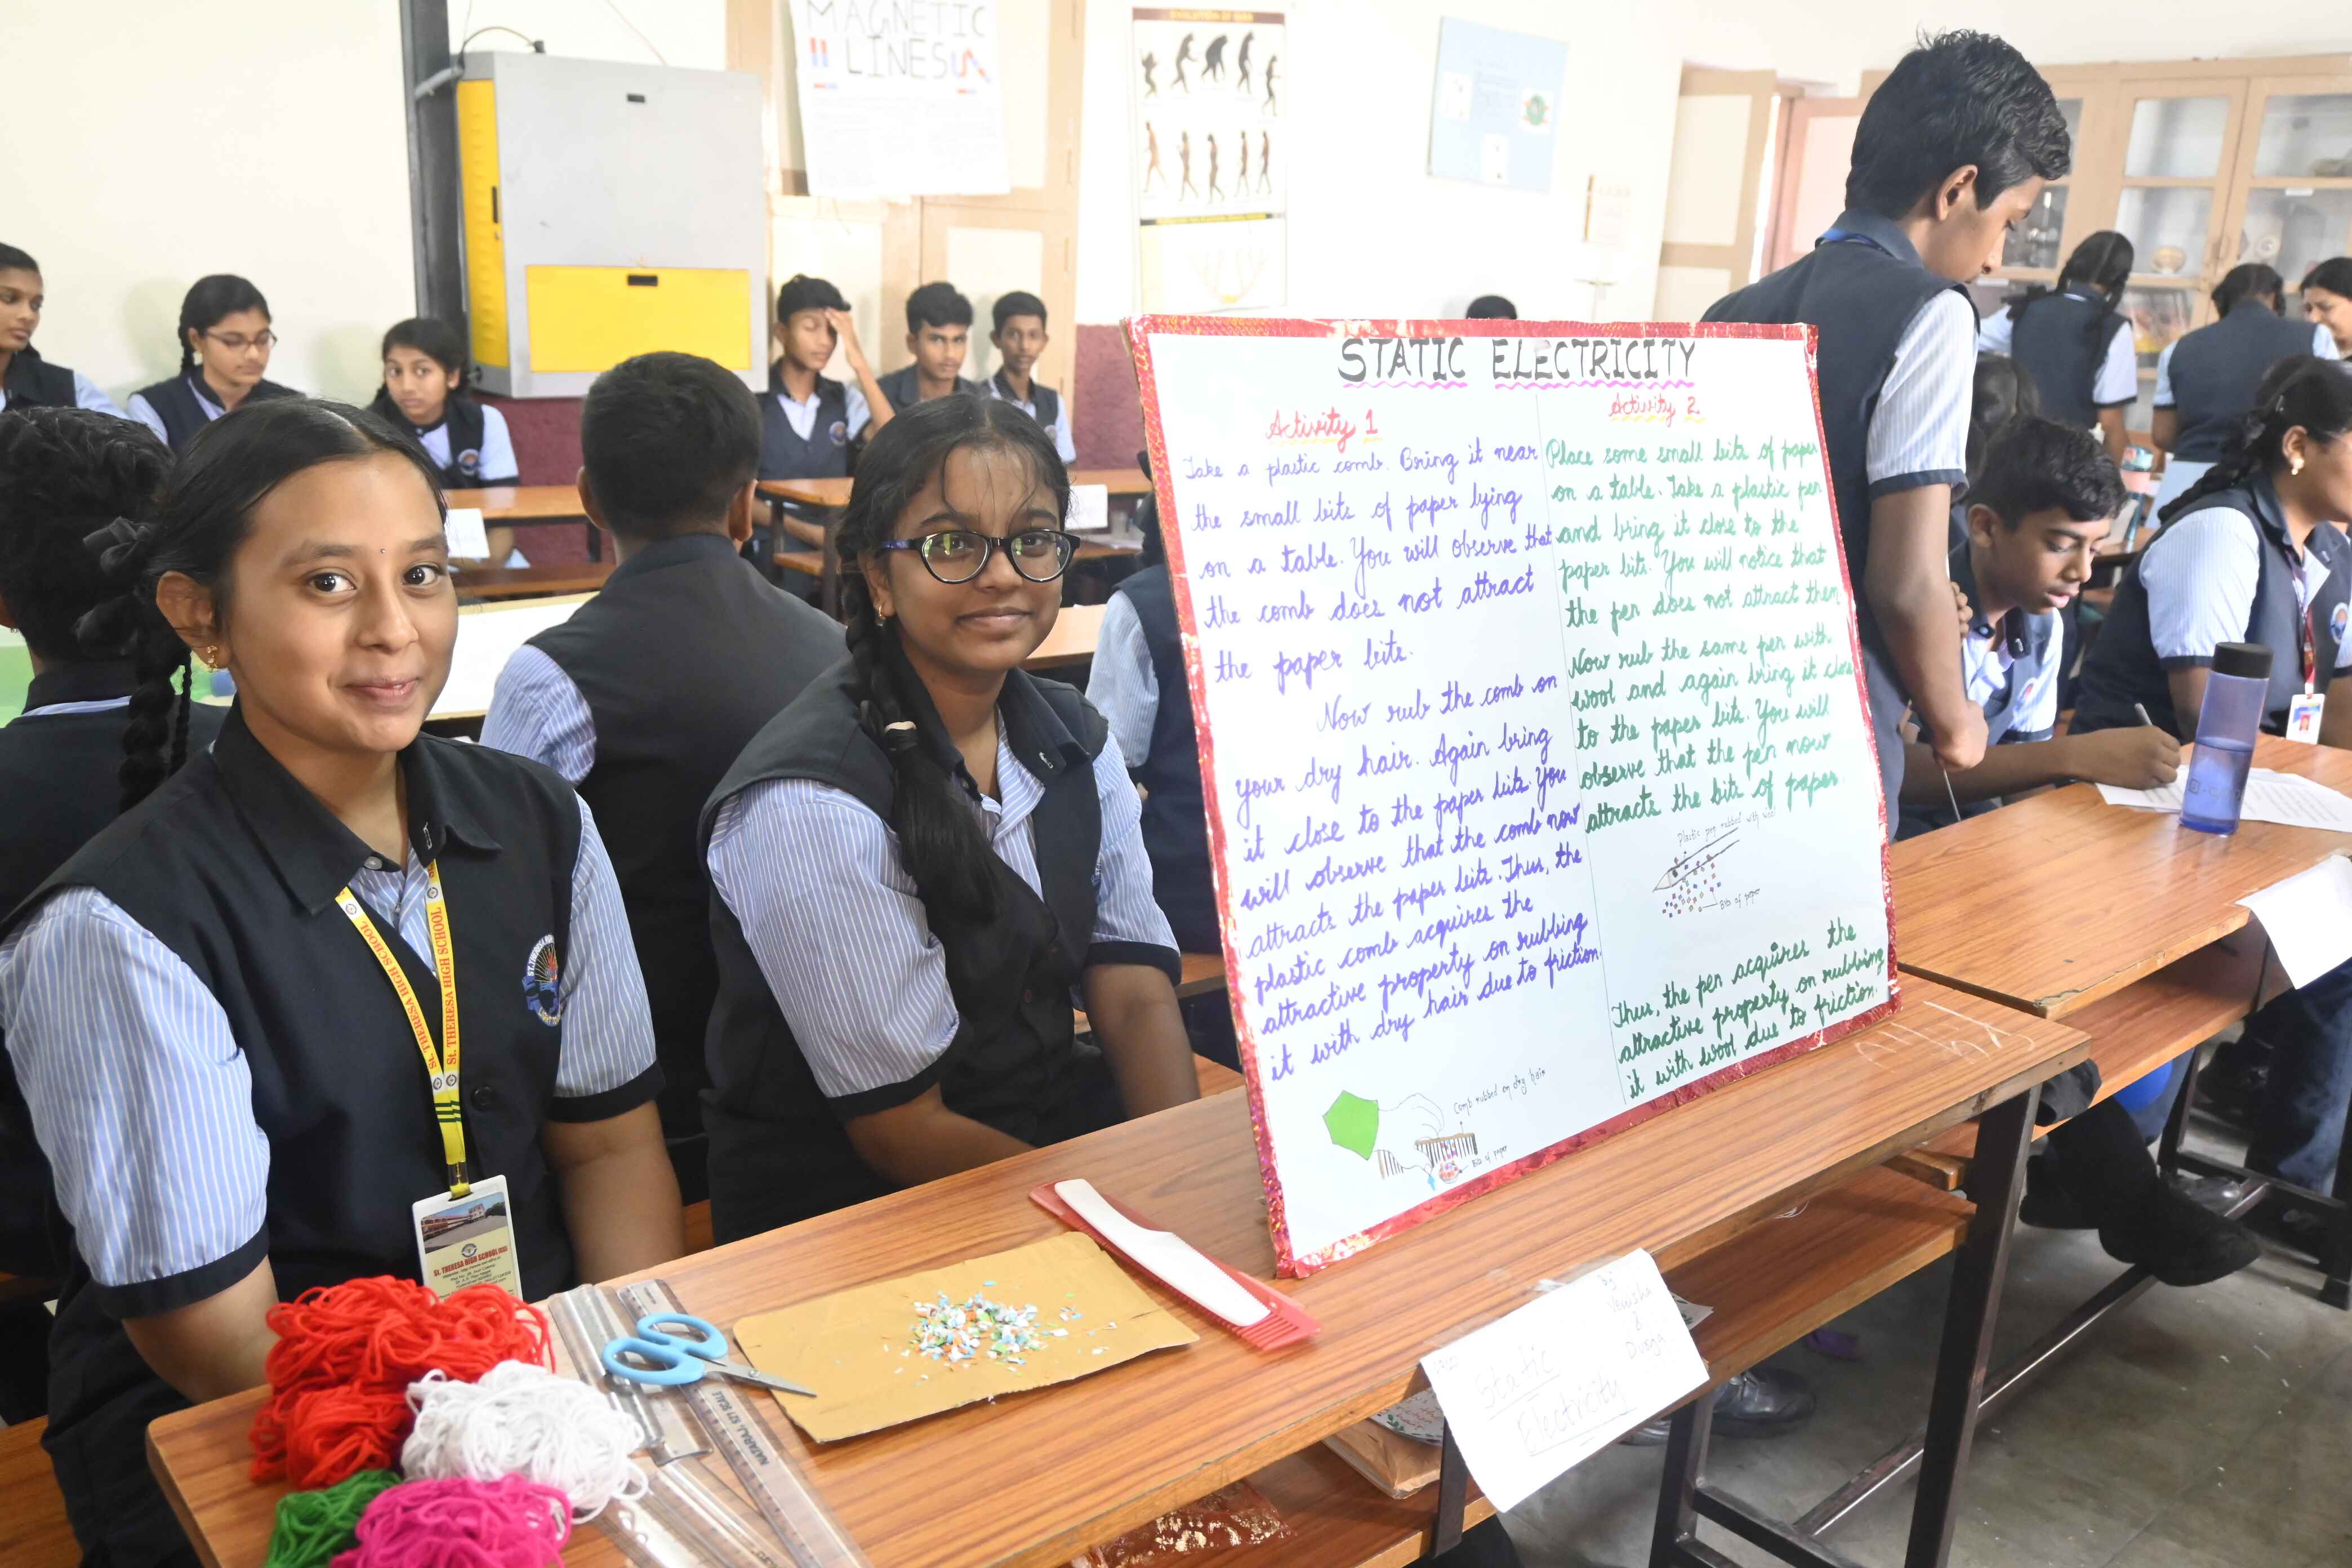 MAGNETIC
LINES
EVOLUTION OF MAN
STATIC ELECTRICITY
Activity 1
Take a plastic comb. Bring it near
the small bits of paper lying
on a table. You will observe that
the comb does not attract
the paper bits.
Now rub the comb on
your dry hair. Again bring
it close to the paper bits. You
will observe that the comb now
attracts the paper bits. Thus, the
plastic comb acquires the
attractive property on rubbing
it with dry hair due to friction.
Comb rubbed on dry hair
Bits of paper
Activity 2
Place some small bits of paper
on a table. Take a plastic pen
and bring it close to the
paper bits. You will notice that
the pen does not attract them
Now rub the same pen with
wool and again bring it close
to the paper bits. You will
observe that the pen now
attracts the bits of paper.
Plastic pen rubbed with wool
Bits of paper
Thus, the pen acquires the
attractive property on rubbing
it with wool due to friction.
St. THERESA HIGH SCHOOL
St. THERESA HIGH SCHOOL
St. THERESA HIGH SCHOOL
NATARAJ 621 SCALE
Static
Electricity
By
&
Durga